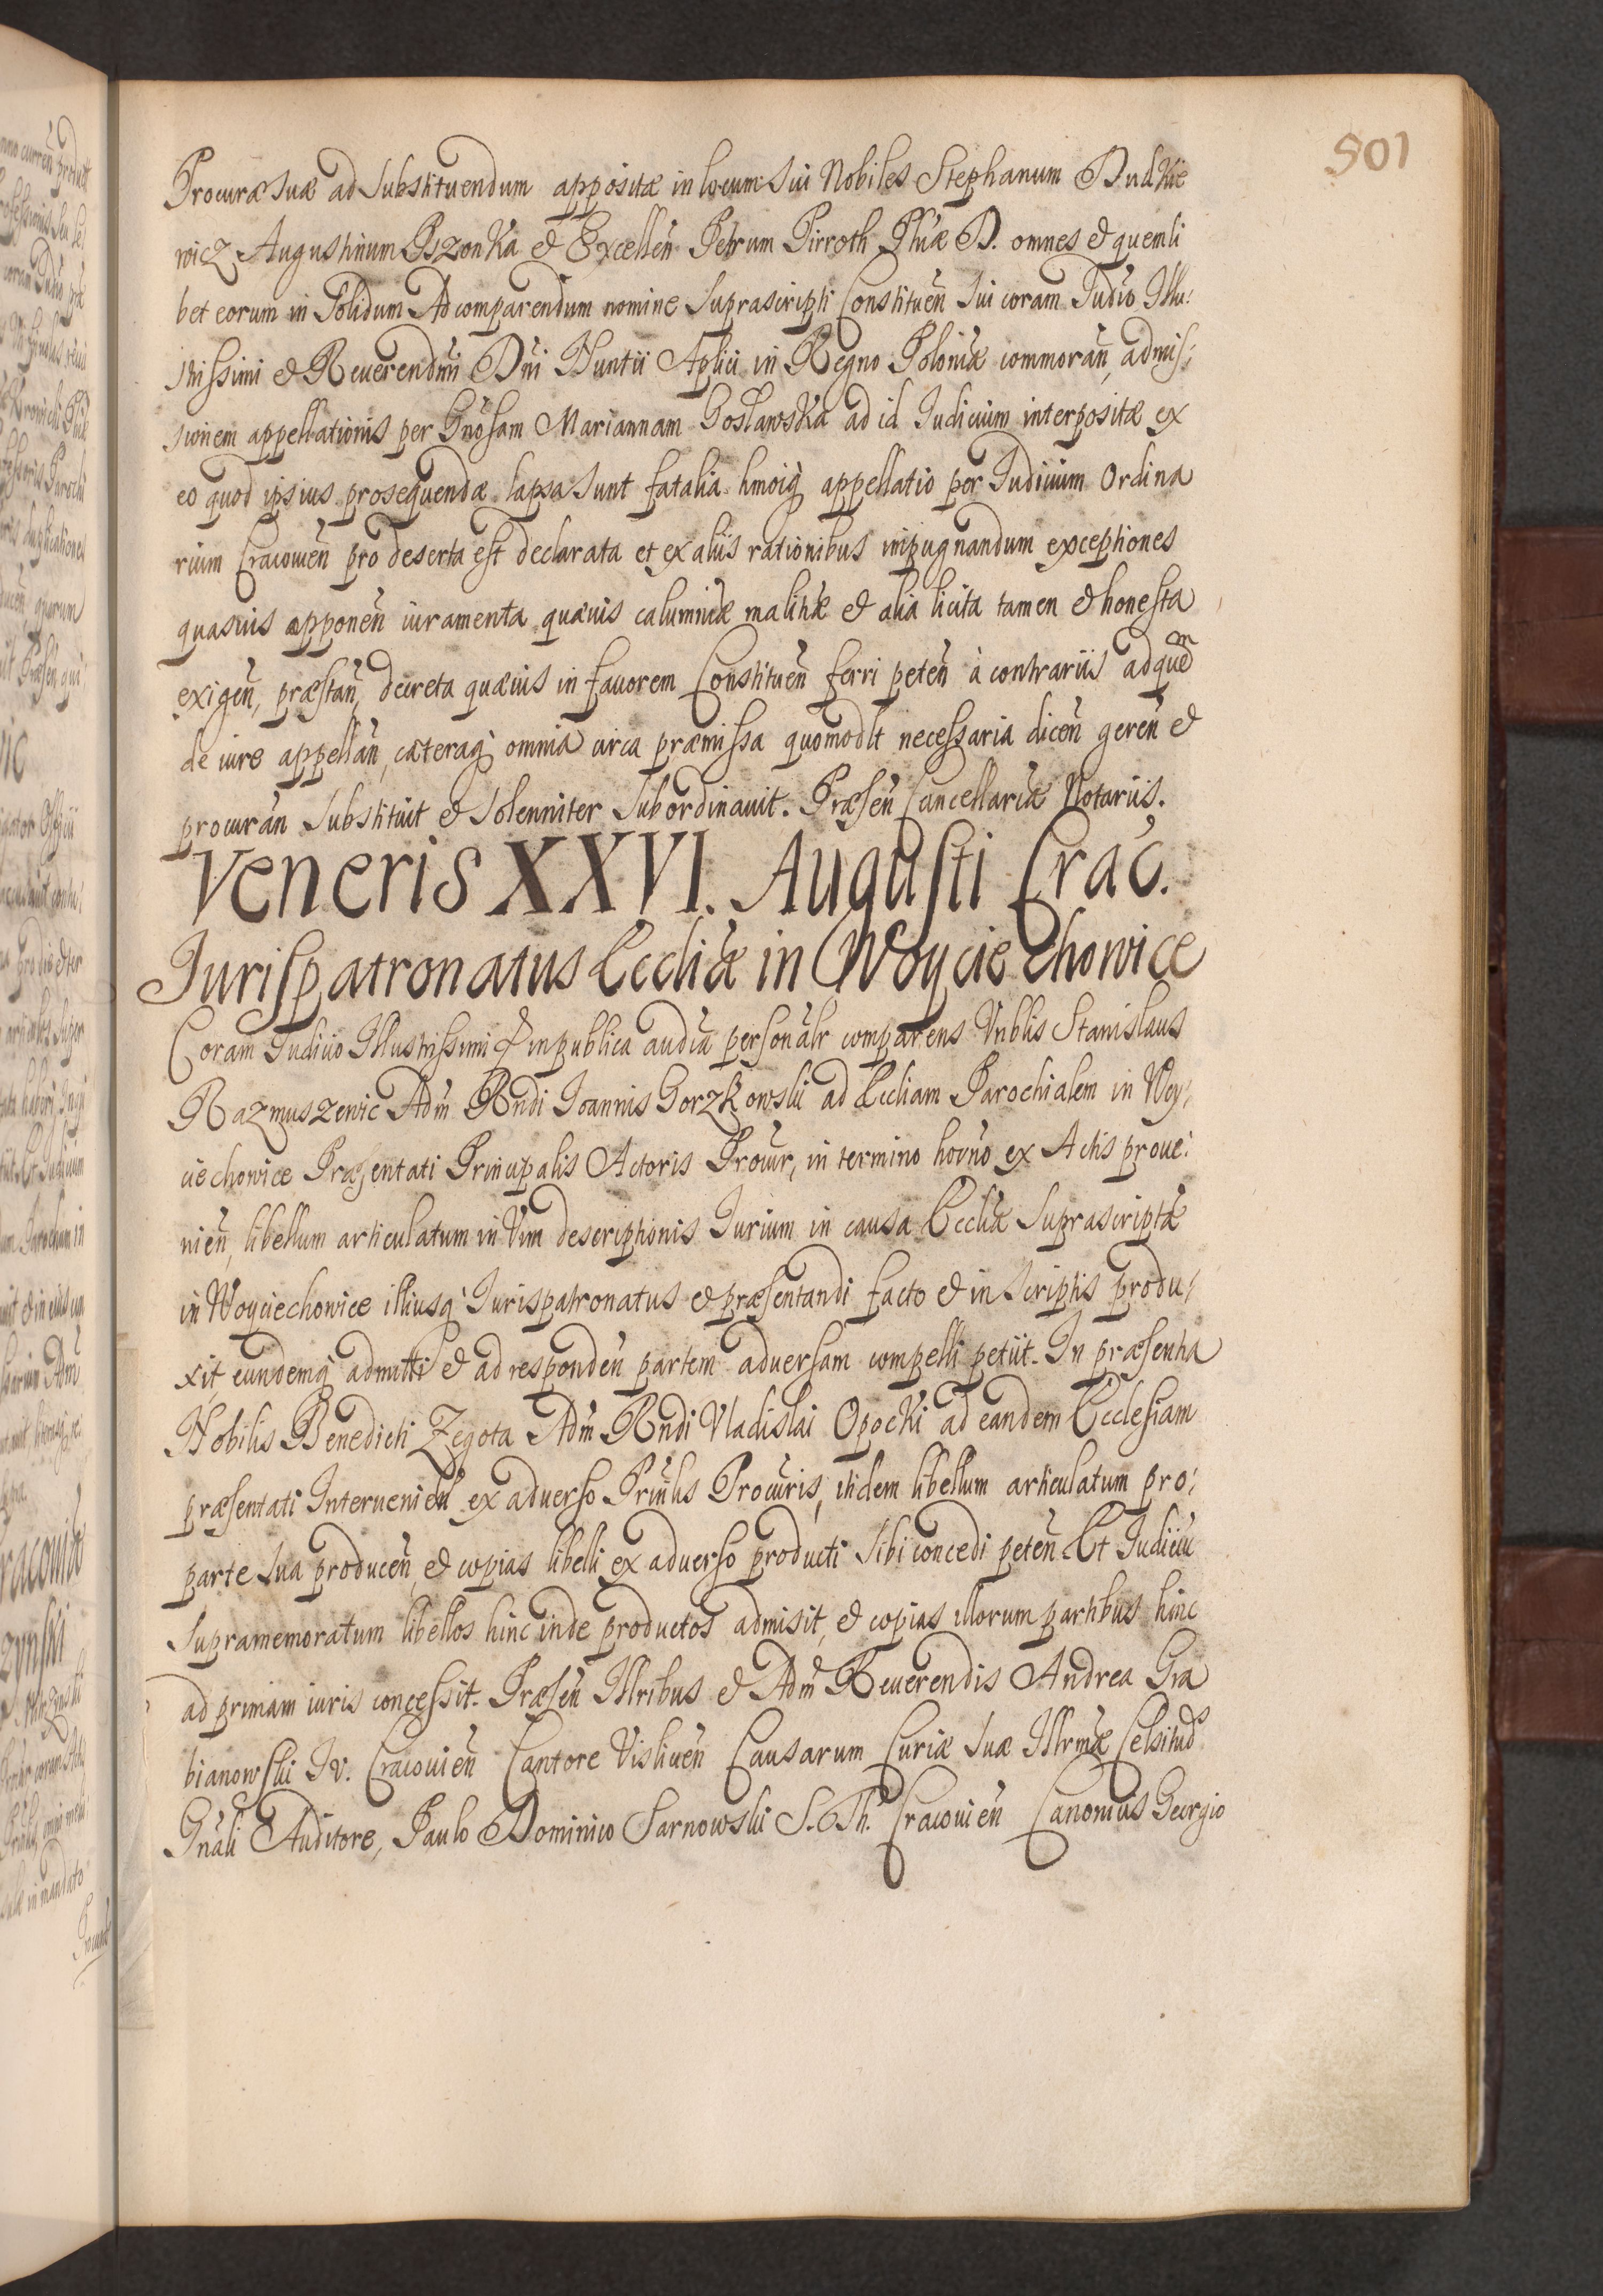 501
Procuræ suæ ad substituendum appositæ in locum sui Nobiles Stephanum Dudkie
wicz Augustinum Pszonka et Excellen̄ Petrum Pirroth Phiæ D. omnes et quemli
bet eorum in Solidum Ad comparendum nomine suprascripti Constituen̄ sui coram Judio Illu:
strissimi et Reuerendmi Dni Nuntii Aplici in Regno Poloniæ commoran̄, admis:
sionem appellationis per Gnosam Mariannam Goslawska ad id Judicium interpositæ ex
eo quod ipsius prosequendæ lapsa sunt fatalia hmoiq appellatio per Judicium Ordina
rium Cracouien̄ pro deserta est declarata et ex aliis rationibus impugnandum exceptiones
quasuis apponen̄ iuramenta quæuis calumniæ malitiæ et alia licita tamen et honesta
exigen̄, præstan̄, decreta quæuis in fauorem Constituen̄ ferri peten̄ à contrariis ad quem
de iure appellan̄, cæteraq omnia circa præmissa quomodlt necessaria dicen̄ geren̄ et
procuran̄ substituit et solenniter subordinauit. Præsen̄ Cancellariæ Notariis.
Veneris XXVI. Augusti Crac.
Jurispatronatus Eccliæ in Woyciechowice
Coram Judicio Illustrissimi & in publica audīa personalr comparens Vnblis Stanislaus
Razmuszewic Adm Rndi Joannis Gorzkowski ad Eccliam Parochialem in Woy:
ciechowice Præsentati Principalis Actoris Procur, in termino hodno ex Actis proue:
nien̄, libellum articulatum in Vim descriptionis Jurium in causa Eccliæ suprascriptæ
in Woyciechowice illiusq Jurispatronatus et præsentandi facto et in scriptis produ:
xit, eundemq admitti et ad responden̄ partem aduersam compelli petiit. In præsentia
Nobilis Benedicti Zegota Adm Rndi Vladislai Opocki ad eandem Ecclesiam
præsentati Interuenien̄ ex aduerso Prinlis Procuris, itidem libellum articulatum pro:
parte sua producen̄, et copias libelli ex aduerso producti sibi concedi peten̄. Et Judiciū
supramemoratum libellos hinc inde productos admisit, et copias illorum partibus hinc
ad primam iuris concessit. Præsen̄ Illribus et Adm Reuerendis Andrea Gra
bianowski IV. Cracouien̄ Cantore Vislicien̄ Causarum Curiæ suæ Illrmæ Celsituds
Gnali Auditore, Paulo Dominico Sarnowski S. Th. Cracouien̄ Canonicis Georgio